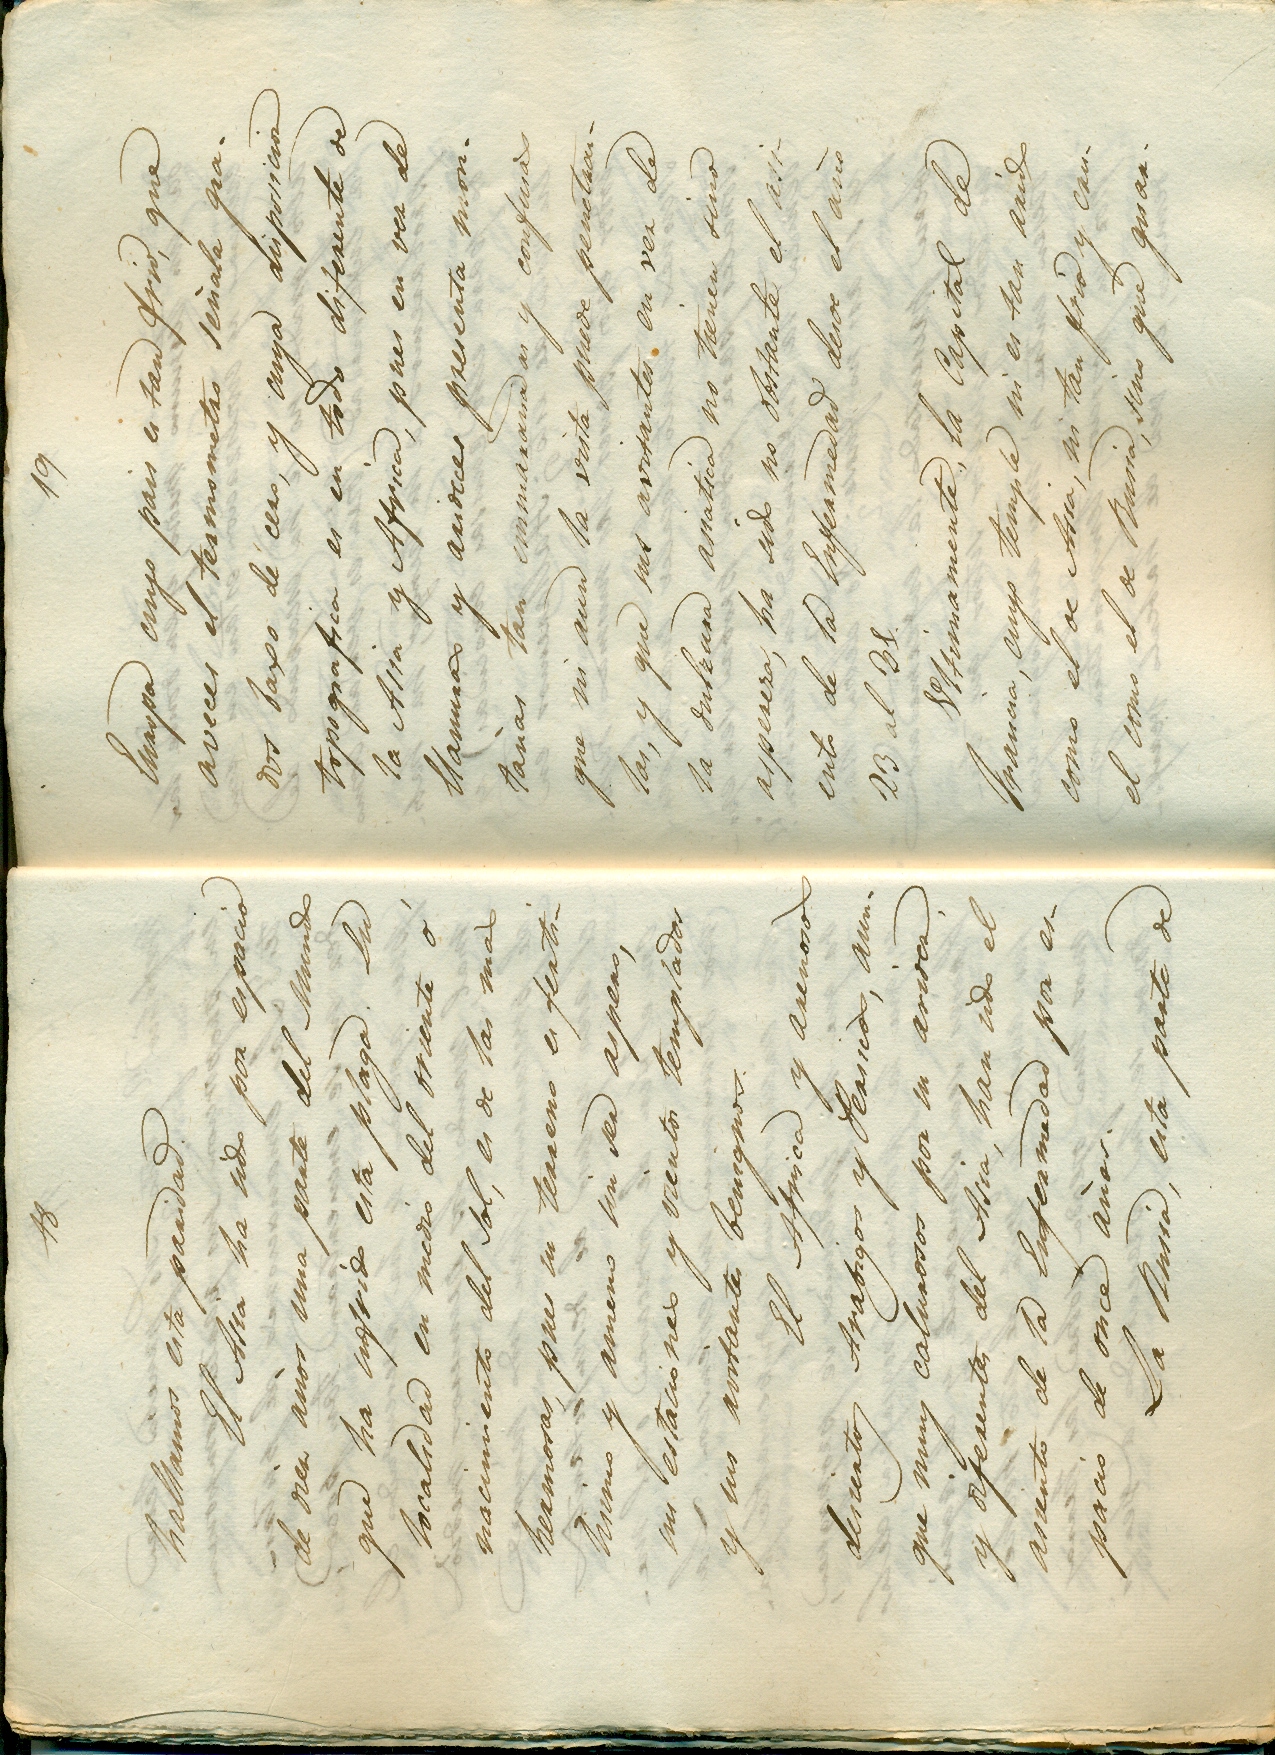 18
hallamos esta paridad.
El Asia ha sido por espacio
de diez años una parte del Mundo
que ha sufrido esta plaga. Su
localidad en medio del oriente ó
nacimiento del Sol, es de las mas
hermosas, pues su terreno es ferti-
lisimo y ameno sin ser aspero,
sus estaciones y viento templados
y sus avitantes benignos.
El Africa y arenosos
desiertos Arabigos y Persicos, aun-
que muy calurosos por su aridez,
y diferentes del Asia, han sido el
asiento de la Enfermedad por es-
pacio de once años.
La Rusia, esta parte de
19
Europa cuyo pais es tan frio, que
aveces el termometro señala gra-
dos baxo de cero, y cuya disposicion
topografica es en todo diferente de
la Asia y Africa, pues en vez de
llanuras y arideces presenta mon-
tañas tan enmarañadas y confusas
que ni aun la vista puede penetrar-
las, y que sus avitantes en vez de
la dulzura asiatica no tienen sino
aspereza, ha sido no obstante el asi-
ento de la Enfermedad desde el año
23 al 31.
Ultimamente, la Capital de
Francia, cuyo temple ni es tan arido
como el de Asia, ni tan frio y cru-
el como el de Rusia, sino que guar-